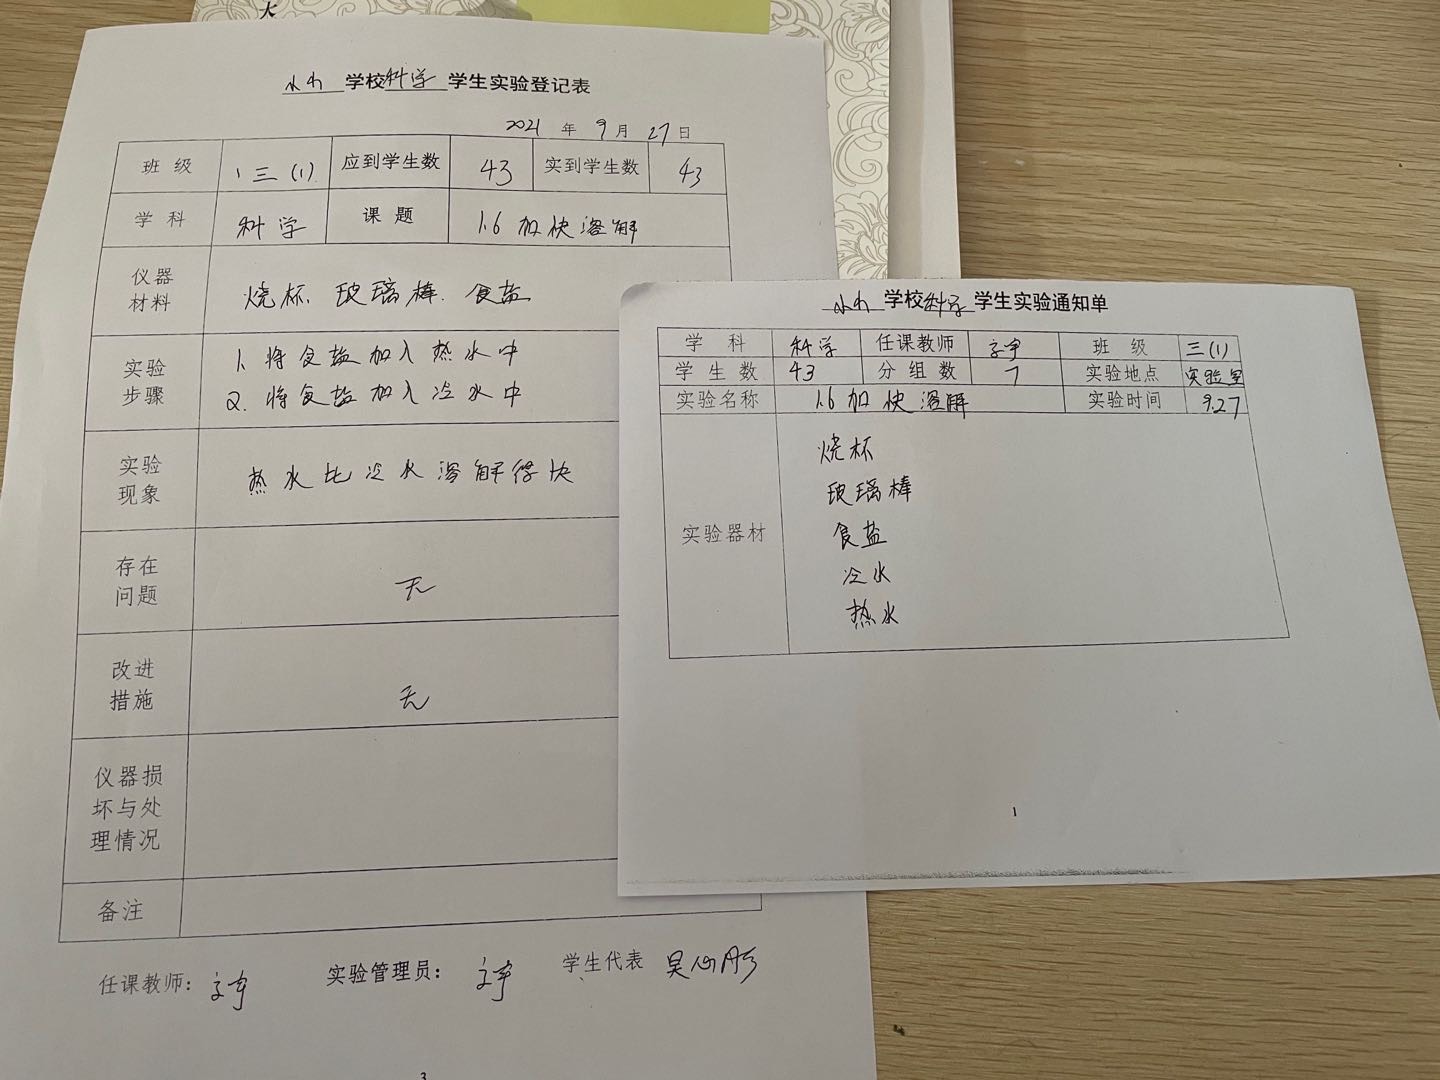 大
小 学校科学 学生实验登记表
2021 年 9 月 27 日
班 级 三(1) 应到学生数 43 实到学生数 43
学 科 科学 课 题 1.6 加快溶解
仪器
材料
烧杯、玻璃棒、食盐
实验
步骤
1. 将食盐加入热水中
2. 将食盐加入冷水中
实验
现象
热水比冷水溶解得快
存在
问题
无
改进
措施
无
仪器损
坏与处
理情况
备注
任课教师:
实验管理员:
学生代表 吴
3
小 学校科学 学生实验通知单
学 科 科学 任课教师 班 级 三(1)
学 生 数 43 分 组 数 7 实验地点 实验室
实验名称 1.6 加快溶解 实验时间 9.27
实验器材
烧杯
玻璃棒
食盐
冷水
热水
1